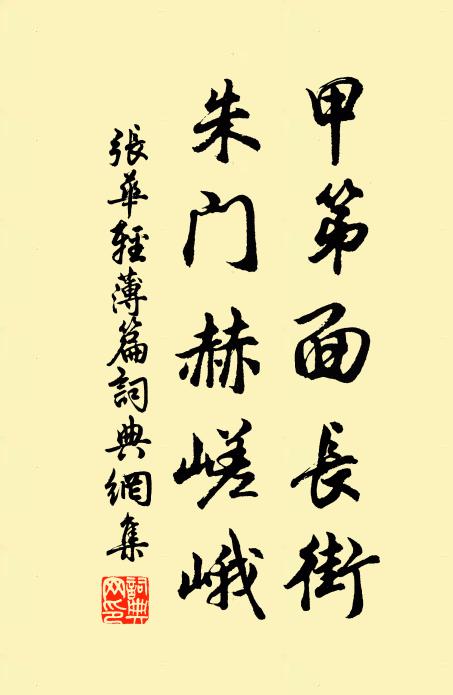 甲第面長街
朱门赫嵯峨
張華輕薄篇詞典網集
詞典網印